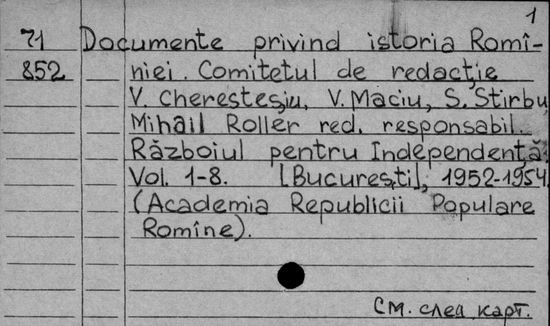 1
71 Documente privind istoria Romî-
852 niei. Comitetul de redacţie
V. Cheresteşiu, V. Maciu, S. Stirbu,
Mihail Roller red. responsabil.
Războiul pentru Independenţă.
Vol. 1-8. [Bucureşti], 1952-1954.
(Academia Republicii Populare
Romîne).
См. след. карт.